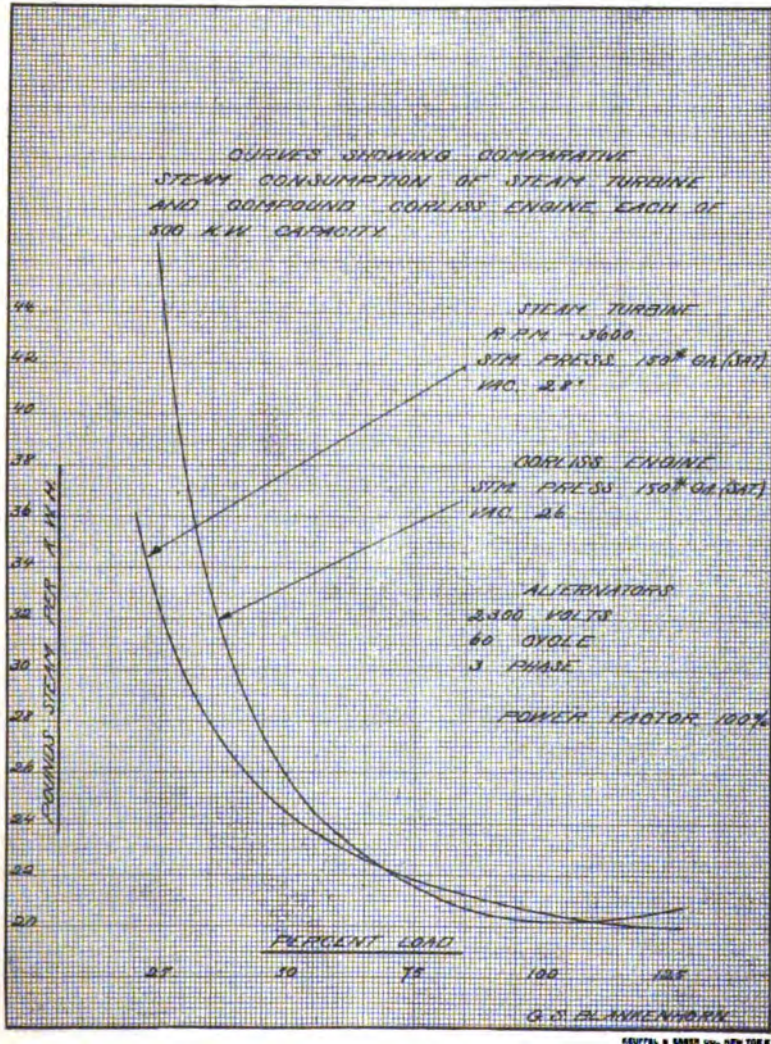 CURVES SHOWING COMPARATIVE
STEAM CONSUMPTION OF STEAM TURBINE
AND COMPOUND CORLISS ENGINE EACH OF
500 K.W. CAPACITY
STEAM TURBINE
R.P.M. 3600
STM. PRESS 150# GA.(SAT)
VAC. 28"
CORLISS ENGINE
STM. PRESS 150# GA.(SAT)
VAC. 26
ALTERNATORS
2300 VOLTS
60 CYCLE
3 PHASE
POWER FACTOR 100%
POUNDS STEAM PER K.W.H.
44
42
40
38
36
34
32
30
28
26
24
22
20
PERCENT LOAD
25 50 75 100 125
G.S. BLANKENHORN
KEUFFEL & ESSER CO. NEW YORK